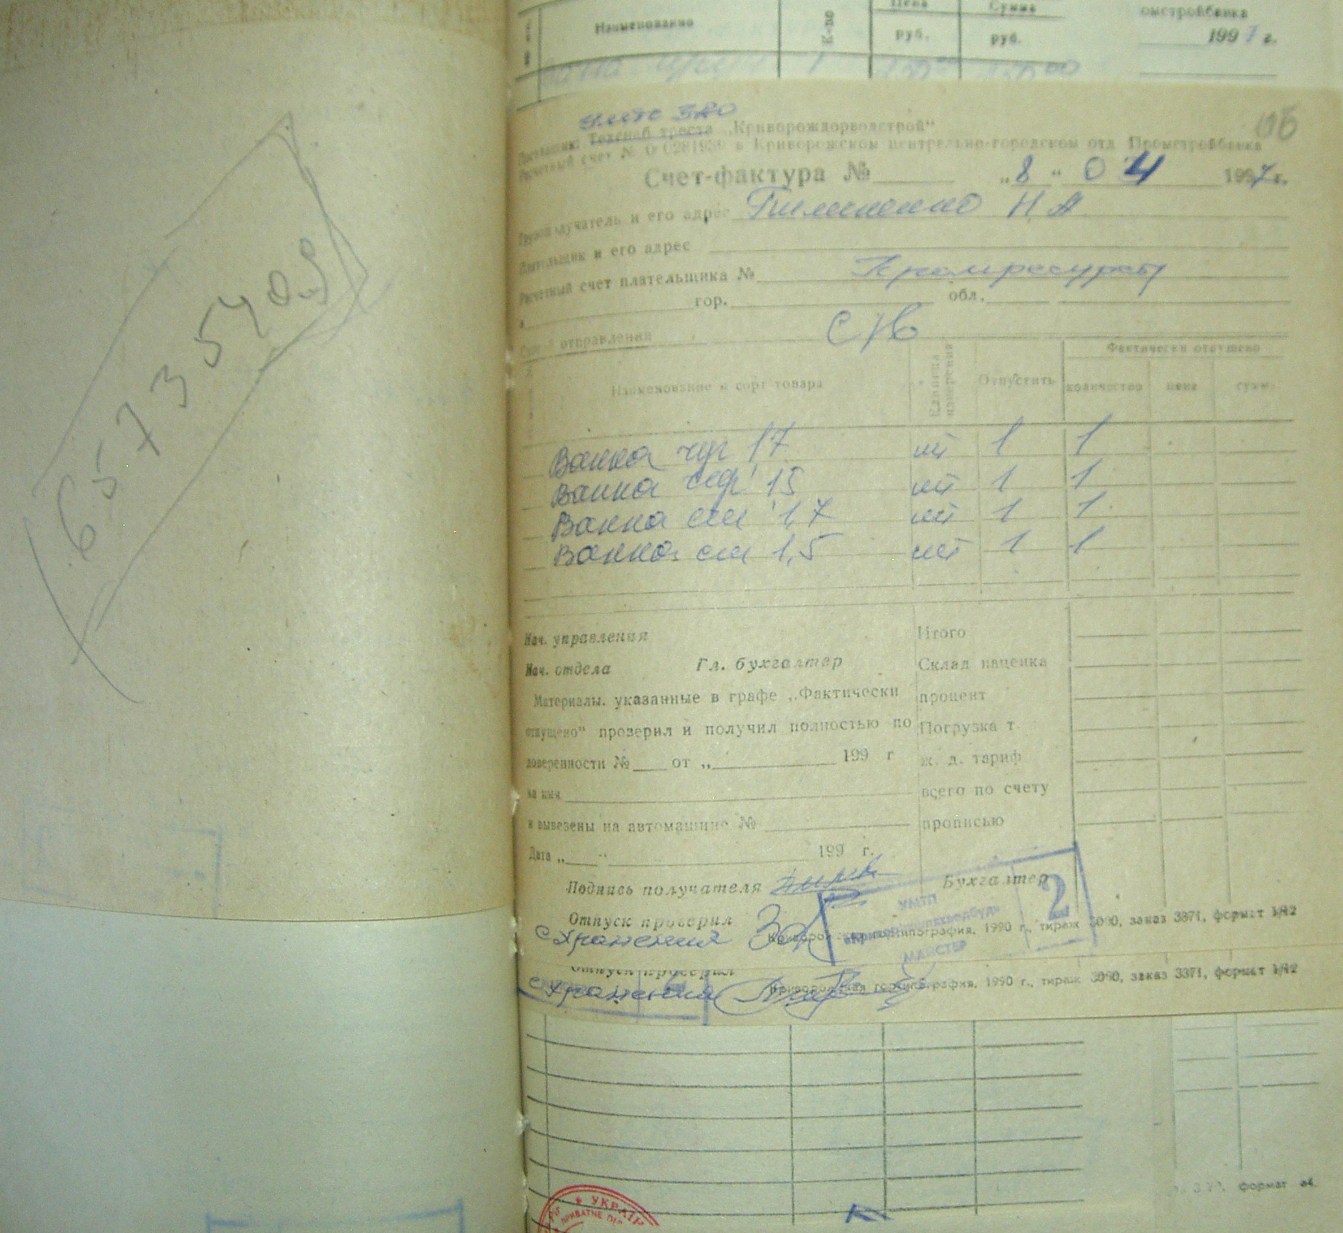 Наименование К-во Цена руб. Сумма руб.
омстройбанка
1997 г.
65 73 54 09
УМТС ЗАО
Поставщик Техснаб треста „Криворождорводстрой"
Расчетный счет № в Криворожском центрально-городском отд. Промстройбанка
Счет-фактура № „8" 04 1997 г.
Грузополучатель и его адрес Н А
Плательщик и его адрес
Расчетный счет плательщика №
в гор. обл.
Способ отправления с/в
Наименование и сорт товара Единица измерения Отпустить Фактически отпущено
количество цена сумма
Ванна чуг 17 шт 1 1
Ванна чуг 15 шт 1 1
Ванна ст 1,7 шт 1 1
Ванна ст 1,5 шт 1 1
Нач. управления Итого
Нач. отдела Гл. бухгалтер Склад наценка
Материалы, указанные в графе „Фактически процент
отпущено" проверил и получил полностью по Погрузка т.
доверенности № от „ 199 г ж. д. тариф
на имя всего по счету
и вывезены на автомашине № прописью
Дата „ " 199 г.
Подпись получателя Бухгалтер
УМТП
МАЙСТЕР
2
Отпуск проверил
с хранения
Криворожская гортипография, 1990 г., тираж 3000, заказ 3371, формат 1/12
Отпуск проверил
с хранения Криворожская гортипография, 1990 г., тираж 3000, заказ 3371, формат 1/12
формат а4.
УКРАЇН
ПРИВАТНЕ ПІД